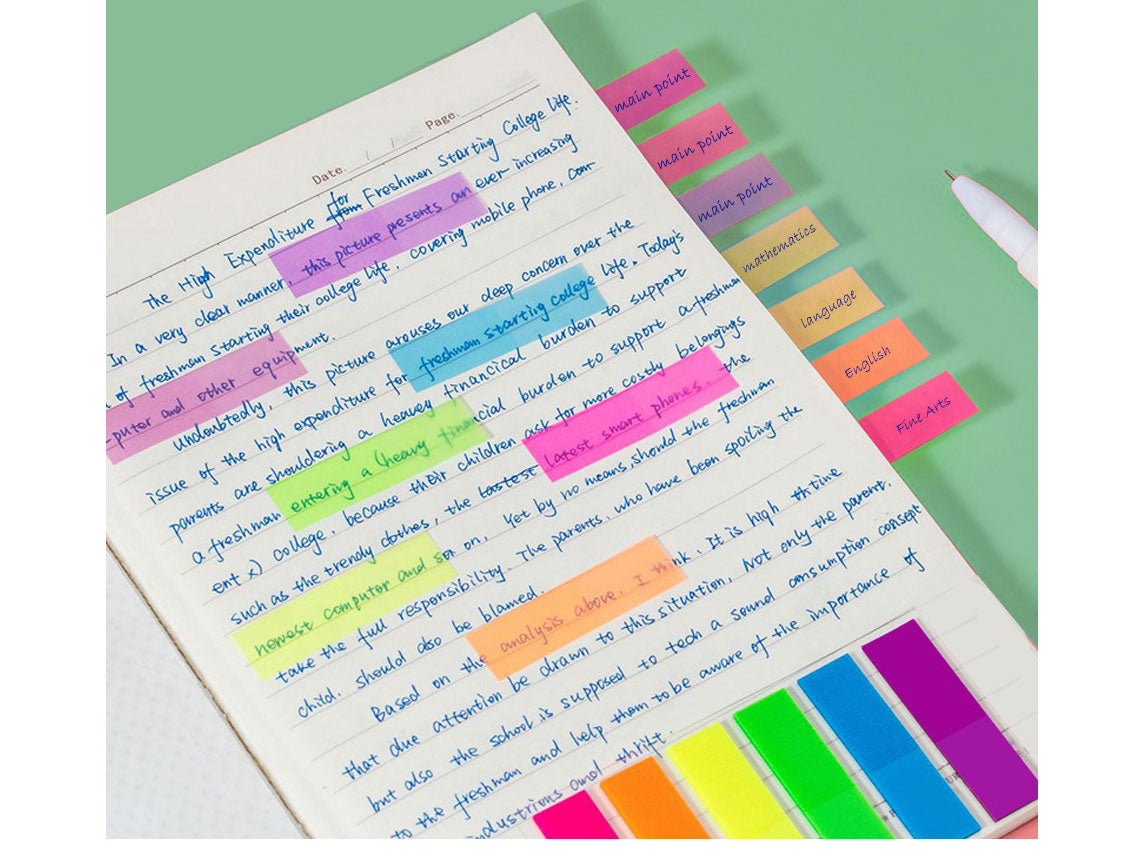 Date. Page.
The High Expenditure for from Freshmen Starting College life.
In a very clear manner, this picture presents an ever increasing
of freshmen starting their college life, covering mobile phone, com-
-puter and other equipment.
Undoubtedly, this picture arouses our deep concern over the
issue of the high expenditure for freshman starting college life. Today's
parents are shouldering a heavy financical burden to support
a freshman entering a (heavy financial burden to support a freshman
ent x) college, because their children ask for more costly belongings
such as the trendy clothes, the lastest latest smart phones, the
newest computor and so on. Yet by no means, should the freshman
take the full responsibility. The parents, who have been spoiling the
child, should also be blamed.
Based on the analysis above, I think, It is high thtime
that due attention be drawn to this situation, Not only the parent,
but also the school is supposed to tech a sound consumption consept
to the freshman and help them to be aware of the importance of
industrious and thrift.
main point
main point
main point
mathematics
language
English
Fine Arts